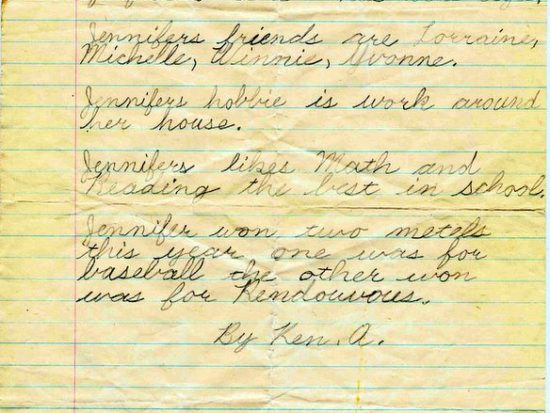 Jennifers friends are Lorraine,
Michelle, Winnie, Yvonne.
Jennifers hobbie is work around
her house.
Jennifers likes Math and
Reading the best in school.
Jennifer won two metels
this year one was for
baseball the other won
was for Rendouvous.
By Ken. A.